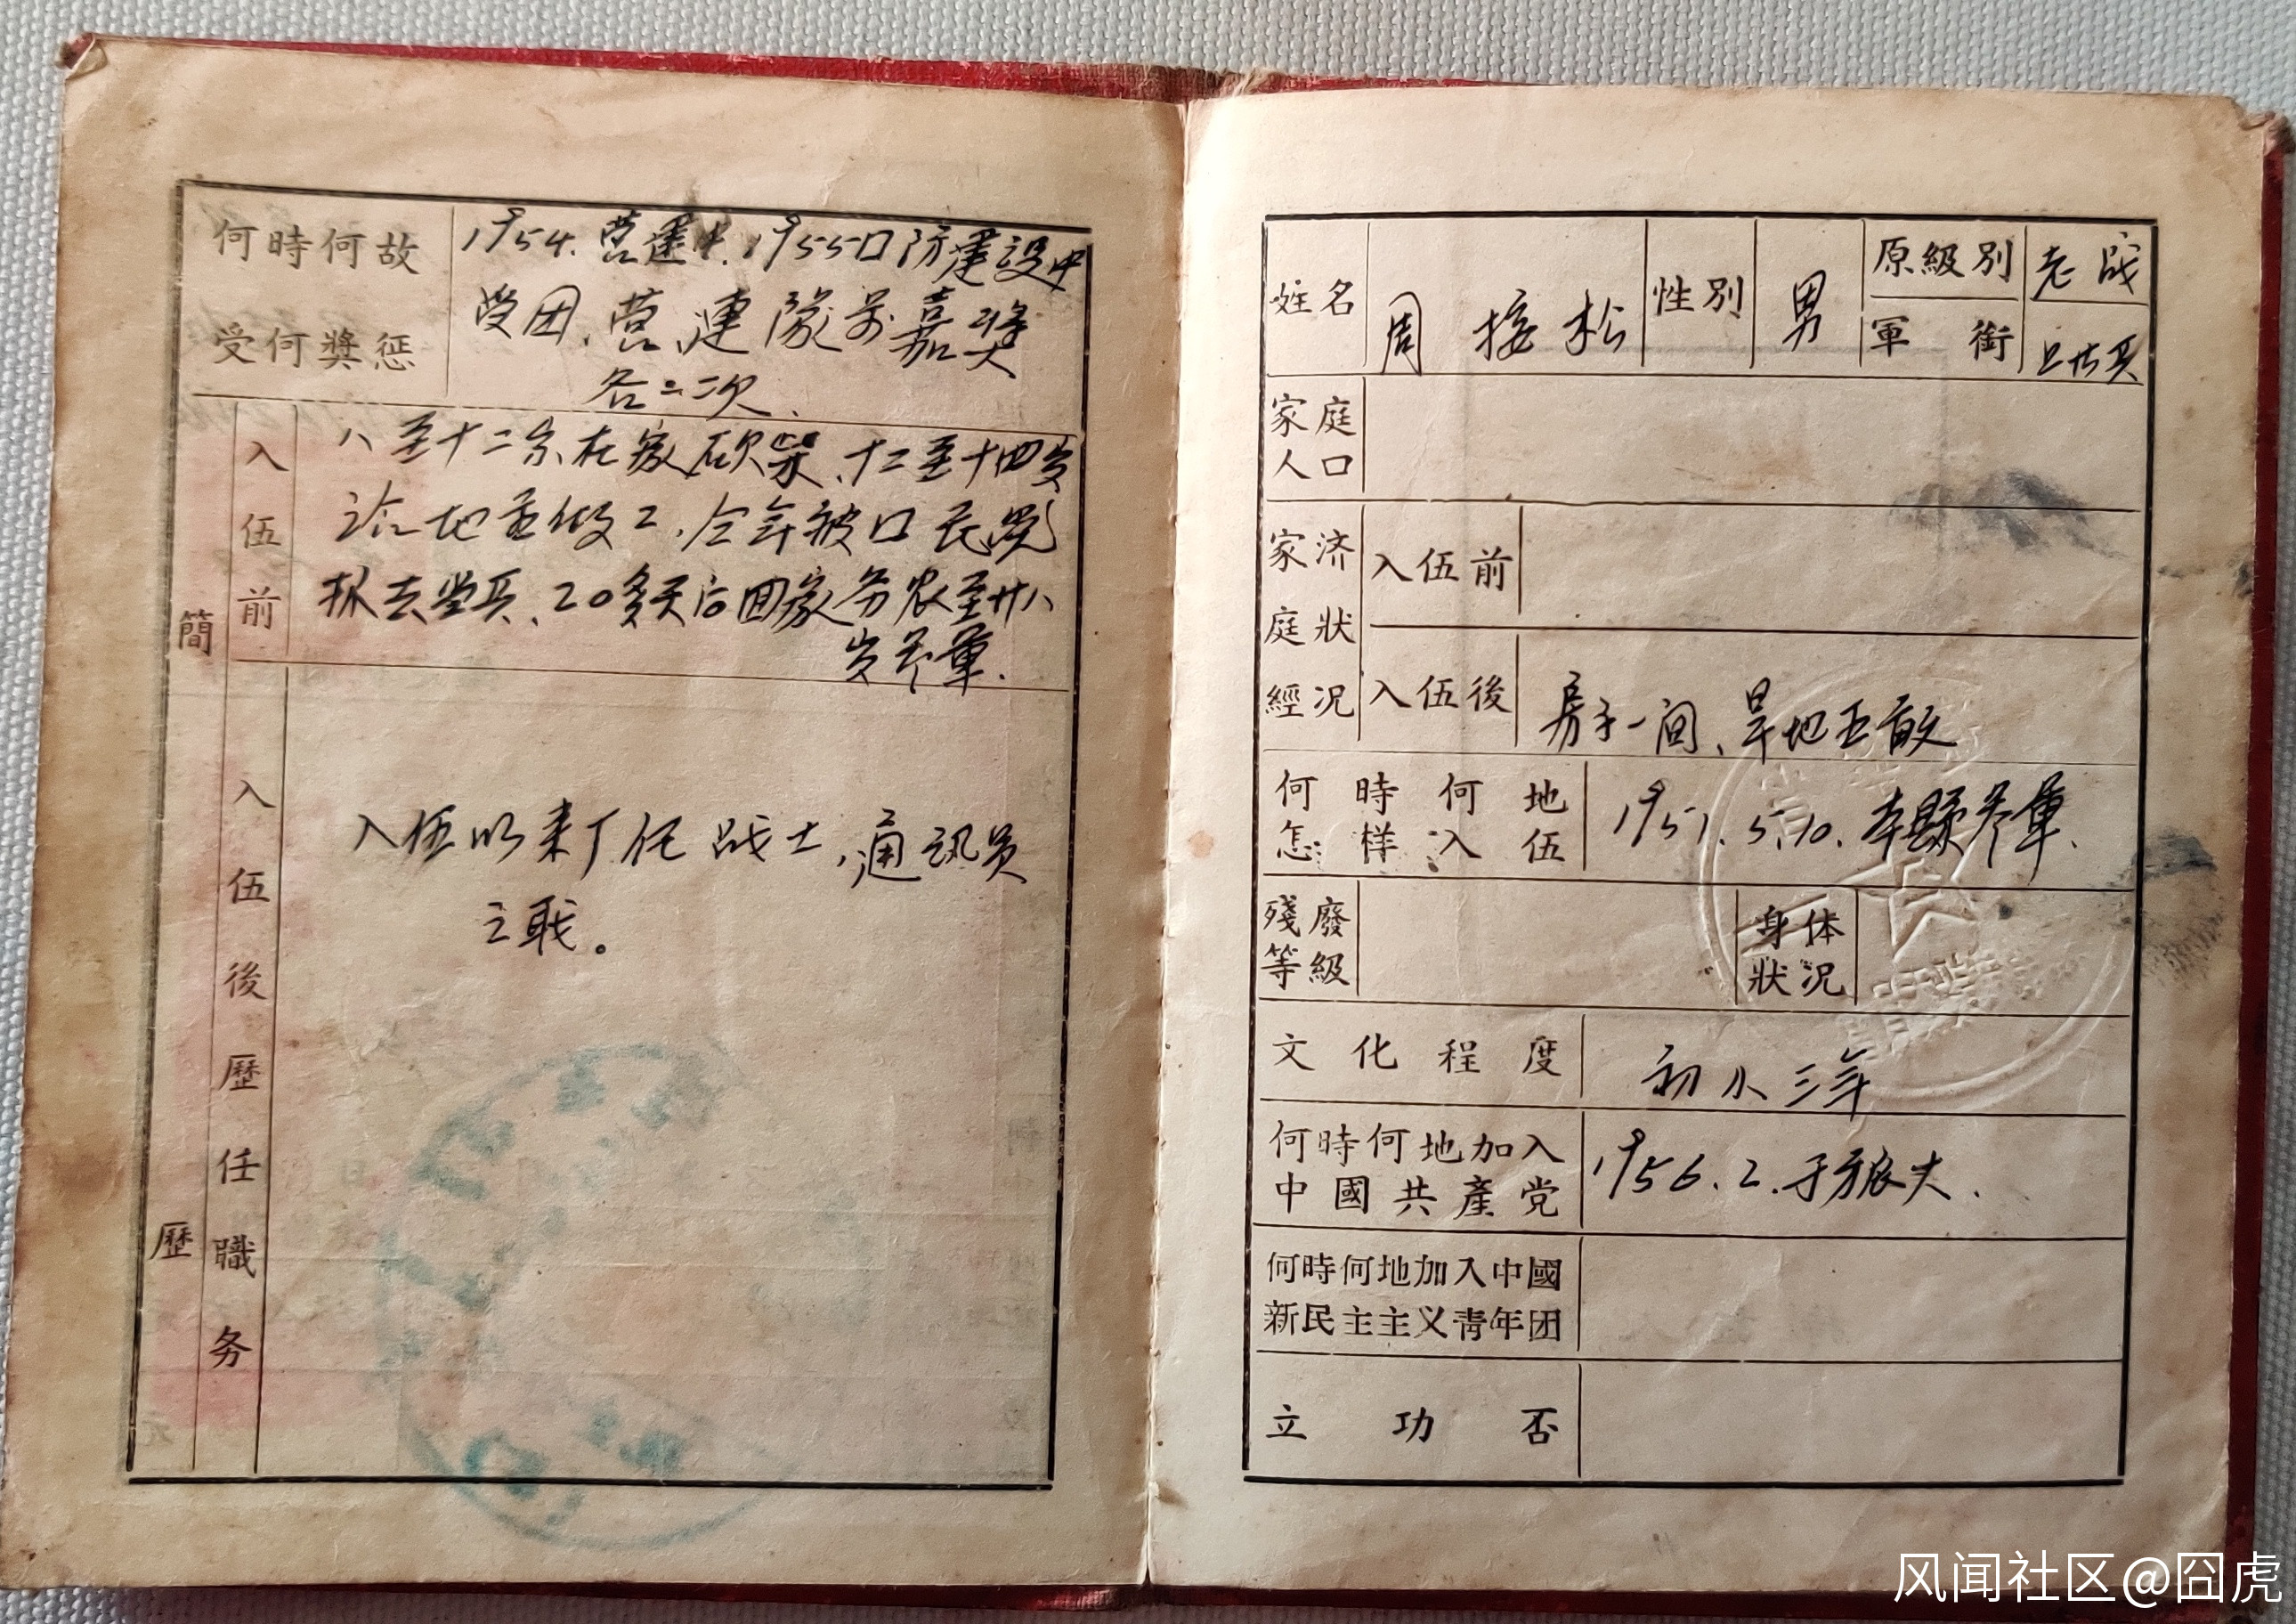 何時何故
受何獎惩
1954.营建中.1955口防建设中
受团、营、连队前嘉奖
各二次.
簡歷
入伍前
八至十二岁在家砍柴、十二至十四岁
诒地主做工.今年被口民党
抓去当兵、20多天后回家务农至廿八
岁参軍.
入伍後歷任職务
入伍以来厂任战士,通讯员
之职。
姓名
周接松
性別
男
原級別
老战
軍銜
上等兵
家庭人口
家庭經济狀況
入伍前
入伍後
房子一间、旱地五亩
何時何地
怎样入伍
1951.5.10.本縣参軍.
殘廢等級
身体狀況
文化程度
初小三年
何時何地加入
中國共產党
1956.2.于
何時何地加入中國
新民主主义青年团
立功否
风闻社区@囧虎